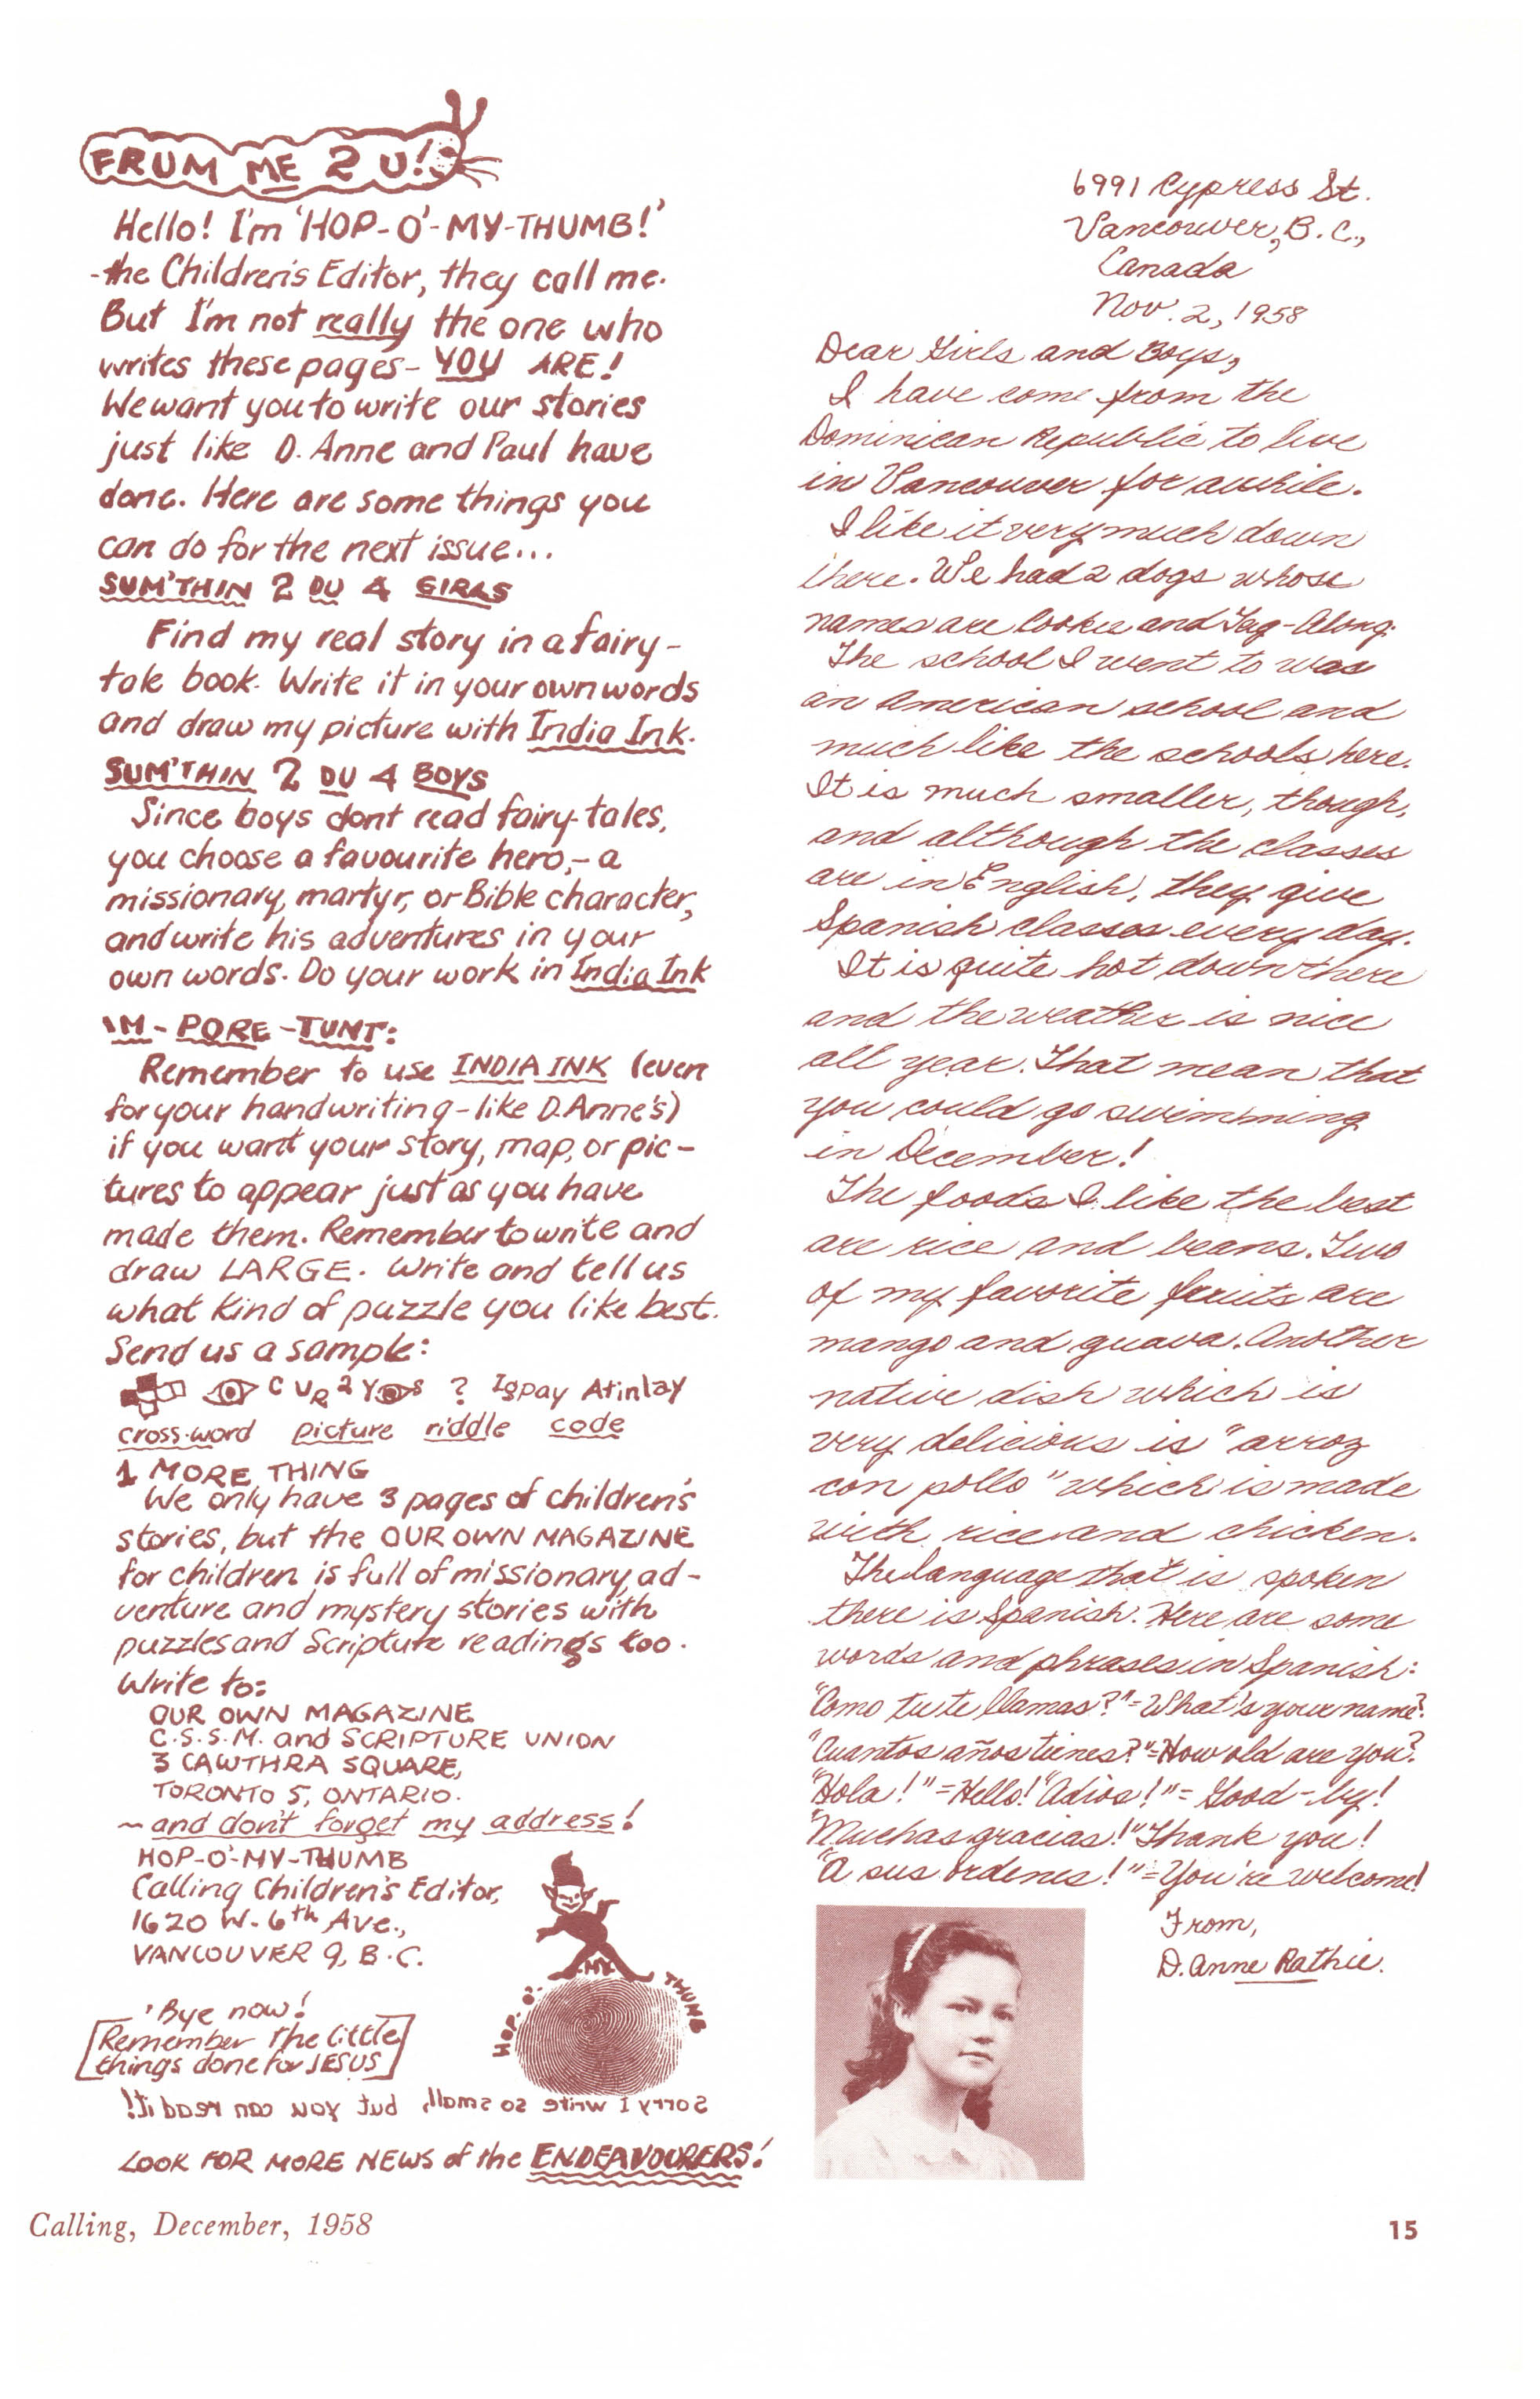 FRUM ME 2 U!
Hello! I'm 'HOP-O'-MY-THUMB!'
-the Children's Editor, they call me.
But I'm not really the one who
writes these pages- YOU ARE!
We want you to write our stories
just like D. Anne and Paul have
done. Here are some things you
can do for the next issue...
SUM'THIN 2 DU 4 GIRLS
Find my real story in a fairy-
tale book. Write it in your own words
and draw my picture with India Ink.
SUM'THIN 2 DU 4 BOYS
Since boys dont read fairy-tales,
you choose a favourite hero,- a
missionary, martyr, or Bible character,
and write his adventures in your
own words. Do your work in India Ink
IM-PORE-TUNT:
Remember to use INDIA INK (even
for your handwriting-like D.Anne's)
if you want your story, map, or pic-
tures to appear just as you have
made them. Remember to write and
draw LARGE. Write and tell us
what kind of puzzle you like best.
Send us a sample:
C U R 2 Y s ? Igpay Atinlay
cross-word picture riddle code
1 MORE THING
We only have 3 pages of children's
stories, but the OUR OWN MAGAZINE
for children is full of missionary, ad-
venture and mystery stories with
puzzles and Scripture readings too.
Write to:
OUR OWN MAGAZINE
C.S.S.M. and SCRIPTURE UNION
3 CAWTHRA SQUARE,
TORONTO 5, ONTARIO.
~ and don't forget my address!
HOP-O'-MY-THUMB
Calling Children's Editor,
1620 W. 6th Ave.,
VANCOUVER 9, B.C.
HOP-O'-MY THUMB
'Bye now!
Remember the little
things done for JESUS
Sorry I write so small, but you can read it!
LOOK FOR MORE NEWS of the ENDEAVOURERS!
6991 Cypress St.
Vancouver, B.C.,
Canada
Nov. 2, 1958
Dear Girls and Boys,
I have come from the
Dominican Republic to live
in Vancouver for awhile.
I like it very much down
there. We had 2 dogs whose
names are Cookie and Tag-Along.
The school I went to was
an American school and
much like the schools here.
It is much smaller, though,
and although the classes
are in English, they give
Spanish classes every day.
It is quite hot down there
and the weather is nice
all year. That mean that
you could go swimming
in December!
The foods I like the best
are rice and beans. Two
of my favorite fruits are
mango and guava. Another
native dish which is
very delicious is "arroz
con pollo" which is made
with rice and chicken.
The language that is spoken
there is Spanish. Here are some
words and phrases in Spanish:
"Como tu te llamas?"=What's your name?
"Cuantos años tienes?"=How old are you?
"Hola!"=Hello! "Adios!"= Good-by!
"Muchas gracias!" Thank you!
"A sus ordenes!"=You're welcome!
From,
D. Anne Rathie.
Calling, December, 1958
15